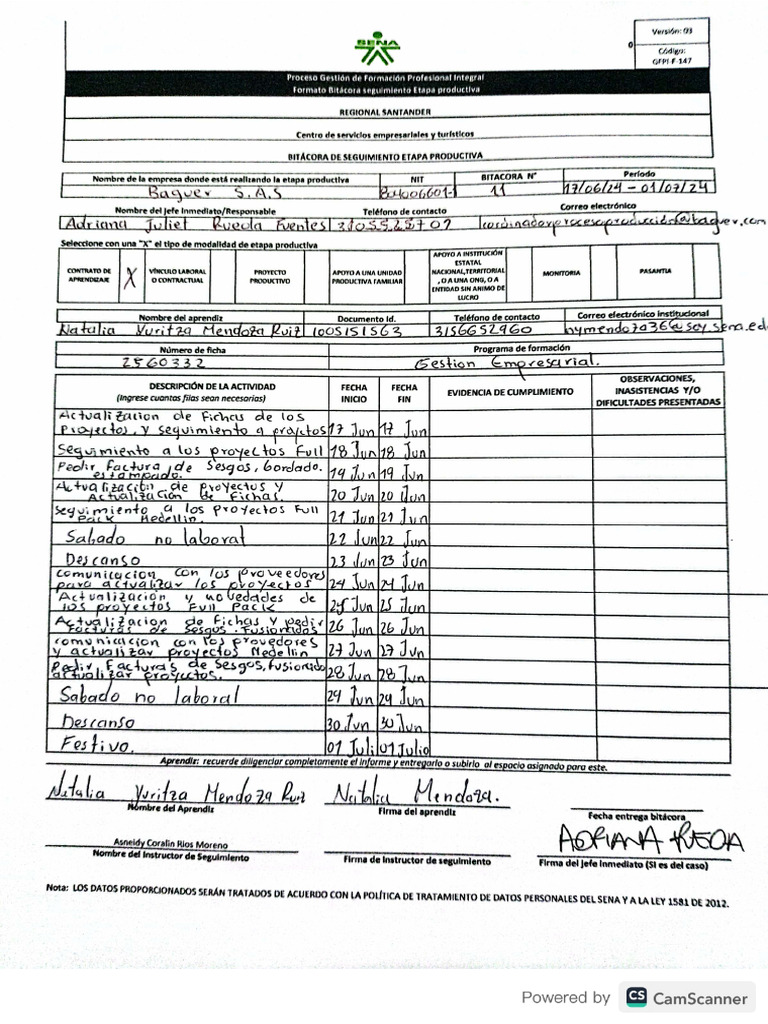 SENA
Versión: 03
Código:
GFPI-F-147
Proceso Gestión de Formación Profesional Integral
Formato Bitácora seguimiento Etapa productiva
REGIONAL SANTANDER
Centro de servicios empresariales y turísticos
BITÁCORA DE SEGUIMIENTO ETAPA PRODUCTIVA
Nombre de la empresa donde está realizando la etapa productiva NIT BITACORA N° Período
Baguer S.A.S 11 17/06/24 - 01/07/24
Nombre del jefe Inmediato/Responsable Teléfono de contacto Correo electrónico
Adriana Juliet Rueda Fuentes
Seleccione con una "X" el tipo de modalidad de etapa productiva
CONTRATO DE APRENDIZAJE X VÍNCULO LABORAL O CONTRACTUAL PROYECTO PRODUCTIVO APOYO A UNA UNIDAD PRODUCTIVA FAMILIAR APOYO A INSTITUCIÓN ESTATAL NACIONAL,TERRITORIAL, O A UNA ONG, O A ENTIDAD SIN ANIMO DE LUCRO MONITORIA PASANTIA
Nombre del aprendiz Documento Id. Teléfono de contacto Correo electrónico institucional
Natalia Yuritza Mendoza Ruiz 1005151563 3156652960 nymendoza36@soy.sena.ed
Número de ficha Programa de formación
2560332 Gestion Empresarial.
DESCRIPCIÓN DE LA ACTIVIDAD FECHA FECHA EVIDENCIA DE CUMPLIMIENTO OBSERVACIONES,
(Ingrese cuantas filas sean necesarias) INICIO FIN INASISTENCIAS Y/O
DIFICULTADES PRESENTADAS
Actualizacion de fichas de los
proyectos, y seguimiento a proyectos 17 Jun 17 Jun
Seguimiento a los proyectos Full 18 Jun 18 Jun
Pedir factura de Sesgos, bordado.
estampado. 19 Jun 19 Jun
Actualización de proyectos y
Actualización de fichas. 20 Jun 20 Jun
Seguimiento a los proyectos Full
Pack Medellin. 21 Jun 21 Jun
Sabado no laboral 22 Jun 22 Jun
Descanso 23 Jun 23 Jun
comunicacion con los proveedores
para actualizar los proyectos 24 Jun 24 Jun
Actualización y novedades de
los proyectos Full Pack 25 Jun 25 Jun
Actualizacion de fichas y pedir
facturas de sesgos. Fusionadas 26 Jun 26 Jun
comunicacion con los provedores
y actualizar proyectos Medellin 27 Jun 27 Jun
Pedir facturas de Sesgos, fusionado
actualizar proyectos. 28 Jun 28 Jun
Sabado no laboral 29 Jun 29 Jun
Descanso 30 Jun 30 Jun
Festivo. 01 Juli 01 Julio
Aprendiz: recuerde diligenciar completamente el informe y entregarlo o subirlo al espacio asignado para este.
Natalia Yuritza Mendoza Ruiz Natalia Mendoza.
Nombre del Aprendiz Firma del aprendiz Fecha entrega bitácora
Asneidy Coralin Rios Moreno ADRIANA RUEDA
Nombre del Instructor de Seguimiento Firma de Instructor de seguimiento Firma del jefe Inmediato (Si es del caso)
Nota: LOS DATOS PROPORCIONADOS SERÁN TRATADOS DE ACUERDO CON LA POLÍTICA DE TRATAMIENTO DE DATOS PERSONALES DEL SENA Y A LA LEY 1581 DE 2012.
Powered by CS CamScanner